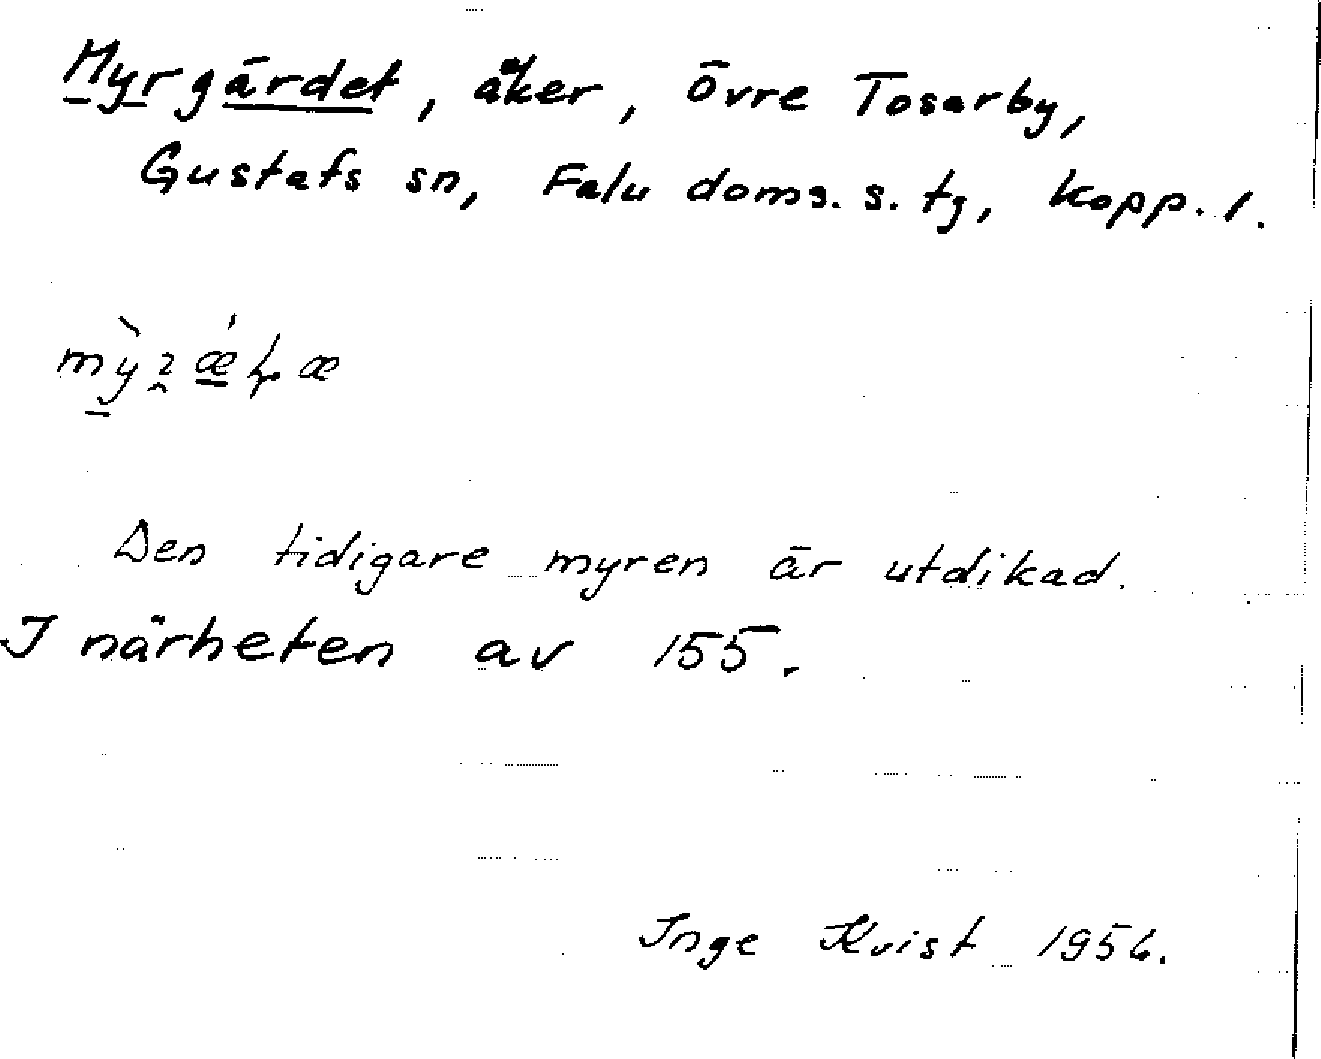 Myrgärdet, åker, Övre Tosarby,
Gustafs sn, Falu doms. s. tg, Kopp. l.
Den tidigare myren är utdikad.
I närheten av 155.
Inge Kvist 1956.